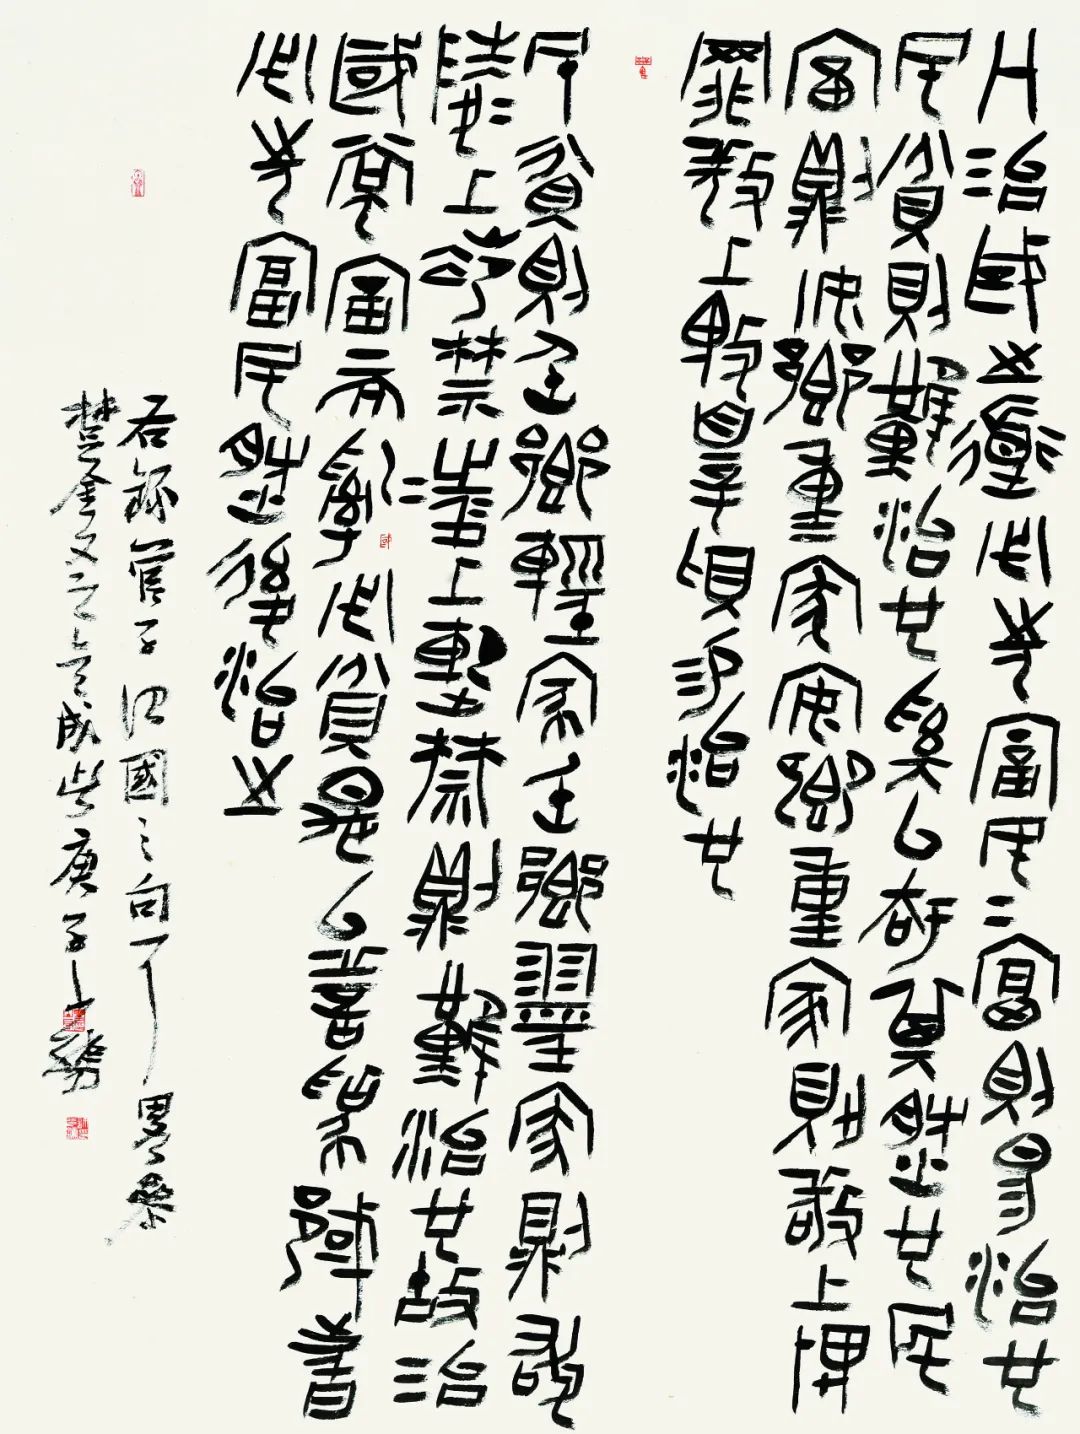 凡治國之道必先富民=富則易治也
民貧則難治也奚以知其然也民
富則安鄉重家安鄉重家則敬上畏
罪敬上畏罪則易治也
民貧則危鄉輕家危鄉輕家則敢
陵上犯禁陵上犯禁則難治也故治
國常富而亂國必貧是以善為國者
必先富民然後治之
右錄管子治國之句
楚金文之意成此庚子